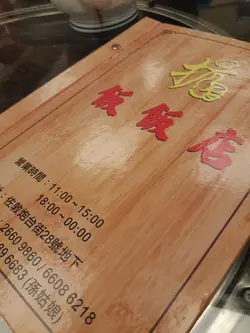 飯飯店
營業時間：11:00~15:00
18:00~00:00
址：佐敦炮台街28號地下
: 2660 9860 / 6608 6218
89 6683 (孫姑娘)